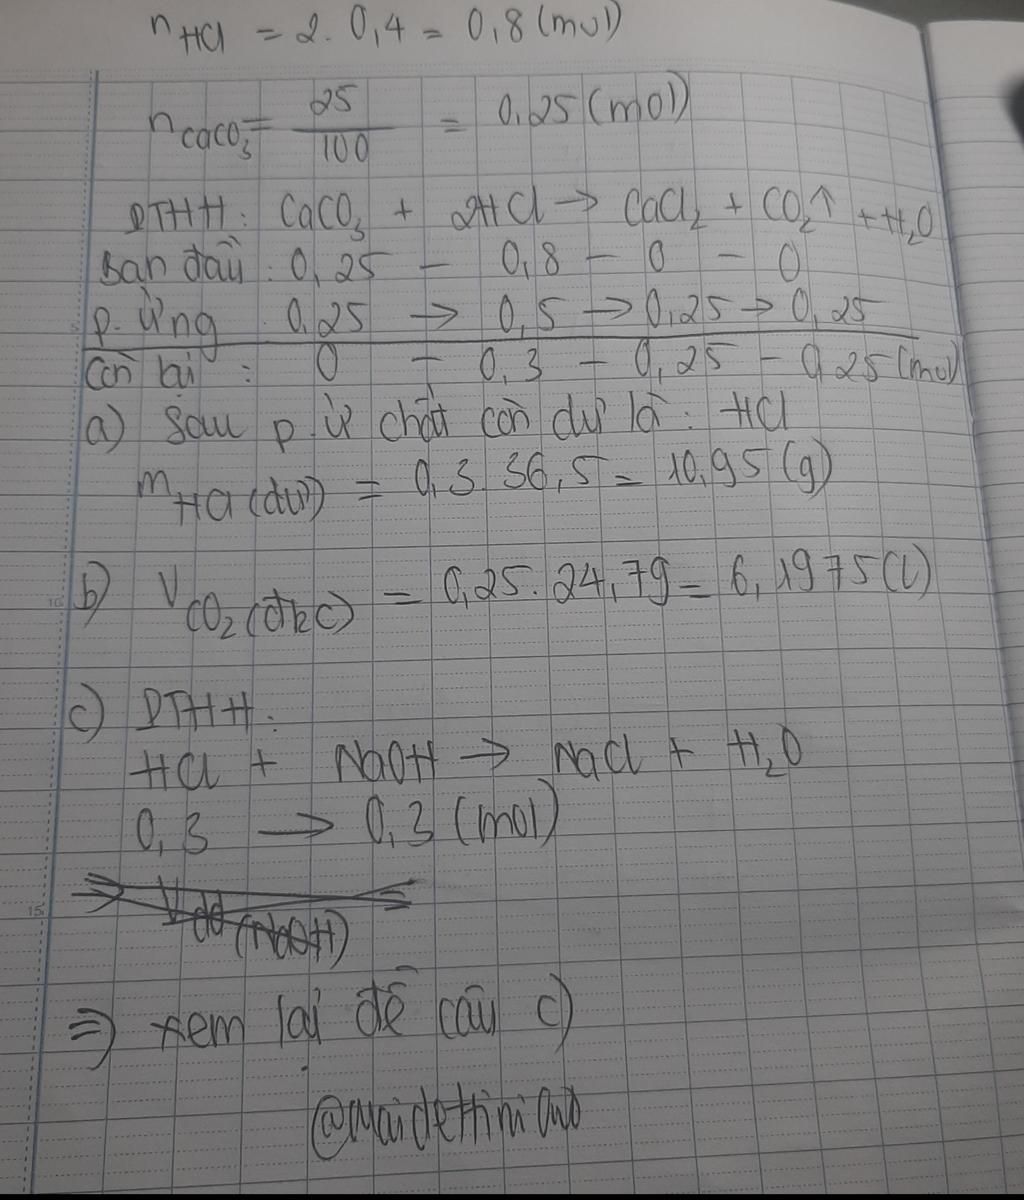 nHCl = 2. 0,4 = 0,8 (mol)
nCaCO₃ = 25/100 = 0,25 (mol)
PTHH: CaCO₃ + 2HCl → CaCl₂ + CO₂↑ + H₂O
Ban đầu: 0,25 – 0,8 – 0 – 0
p. ứng 0,25 → 0,5 → 0,25 → 0,25
Còn lại : 0 – 0,3 – 0,25 – 0,25 (mol)
a) Sau p.ứ chất còn dư là: HCl
mHCl (dư) = 0,3.36,5 = 10,95 (g)
b) VCO₂ (đkc) = 0,25.24,79 = 6,1975 (l)
c) PTHH:
HCl + NaOH → NaCl + H₂O
0,3 → 0,3 (mol)
⇒ Vdd (NaOH) =
⇒ xem lại đề câu c)